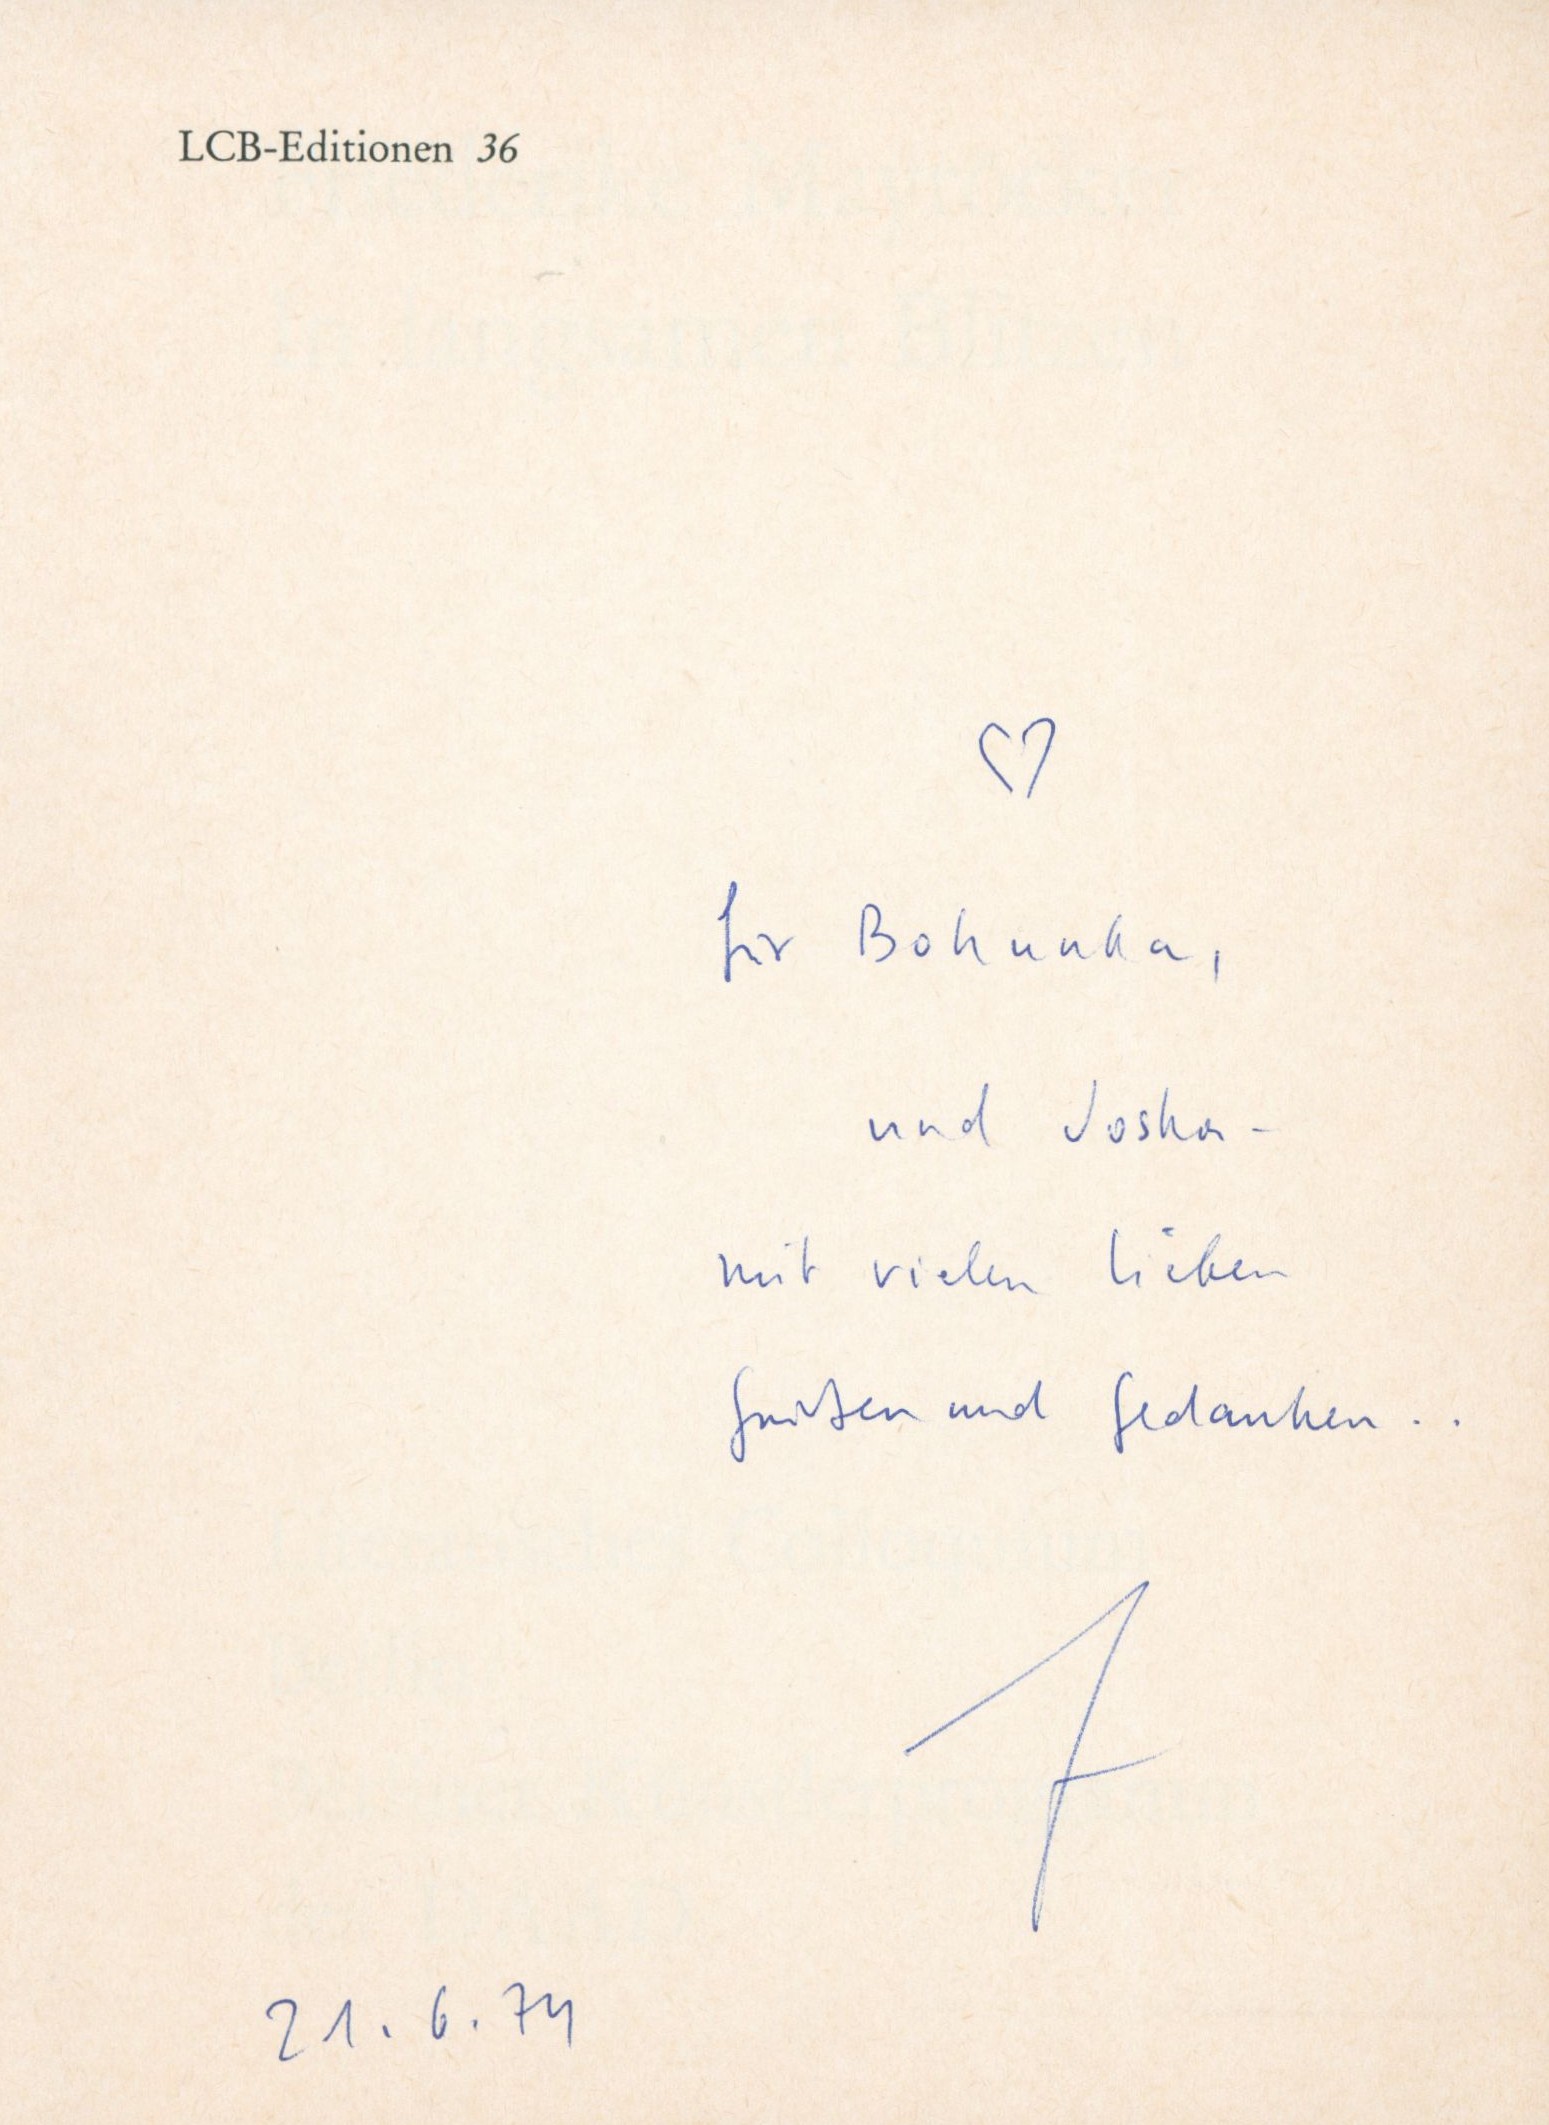 LCB-Editionen 36
für Bohunka,
und Joska -
mit vielen lieben
Grüßen und Gedanken ..
21.6.74